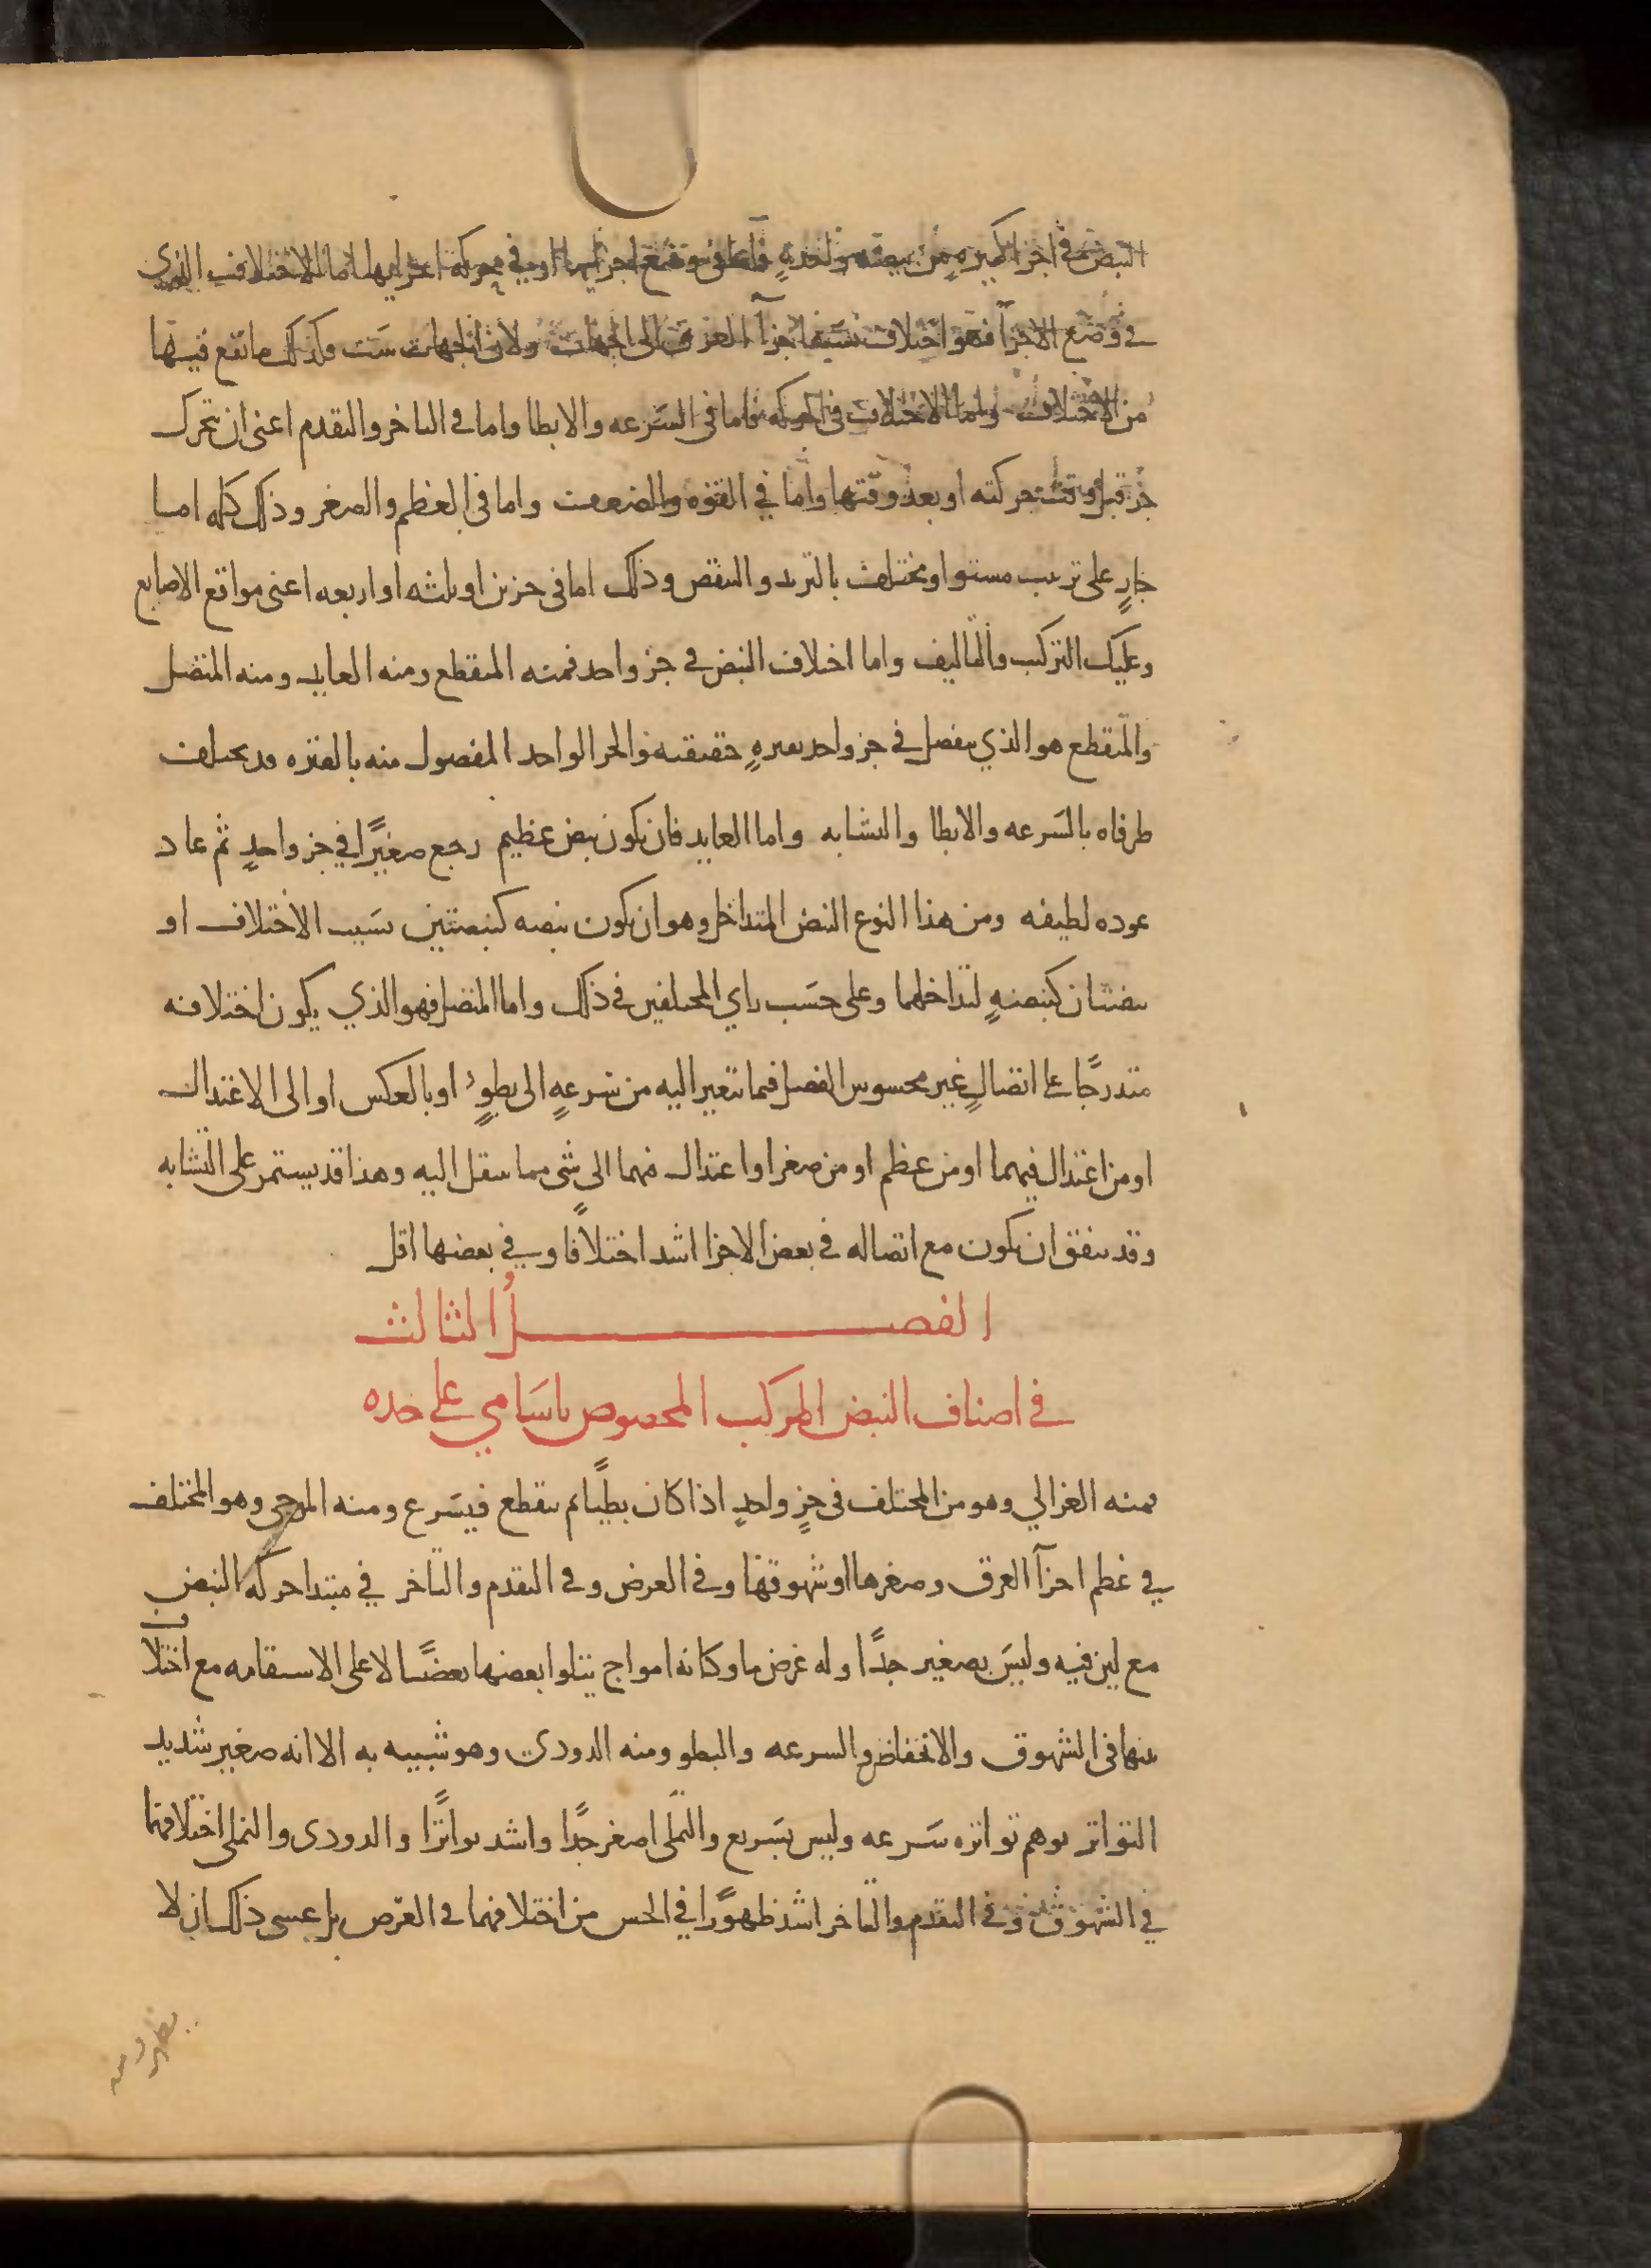 النبض في اجزا كثيره من نبضه واحده فاما في وضع اجزايها او في حركه اجزايها اما الاختلاف الذي
في وضع الاجزآ فهو اختلاف نسبه اجزآ العرق الى الجهات ولان الجهات ست فكذلك ما تقع فيها
من الاختلاف واما الاختلاف في الحركه فاما في السرعه والابطا واما في التاخر والتقدم اعني ان تحرك
جز قبل وقت حركته او بعد وقتها واما في القوه والضعف واما في العظم والصغر وذلك كله اما
جارٍ على ترتيب مستو او مختلف بالتزيد والتنقص وذلك اما في جزين او ثلثه او اربعه اعني مواقع الاصابع
وعليك التركيب والتاليف واما اختلاف النبض في جز واحد فمنه المنقطع ومنه العايد ومنه المتصل
والمنقطع هو الذي ينفصل في جز واحد بفترهٍ حقيقيه والجز الواحد المفصول منه بالفتره قد يختلف
طرفاه بالسرعه والابطا والتشابه واما العايد فان يكون نبض عظيم رجع صغيرًا في جز واحدٍ ثم عاد
عوده لطيفه ومن هذا النوع النبض المتداخل وهو ان يكون نبضه كنبضتين بسبب الاختلاف او
نبضتان كنبضهٍ لتداخلهما وعلى حسب راي المختلفين في ذلك واما المتصل فهو الذي يكون اختلافه
متدرجًا على اتصالٍ غير محسوس الفصل فيما تتغير اليه من سرعهٍ الى بطوٍ او بالعكس او الى الاعتدال
او من اعتدال فيهما او من عظم او من صغر او اعتدال فيهما الى شى مما ينتقل اليه وهذا قد يستمر على التشابه
وقد يتفق ان يكون مع اتصاله في بعض الاجزا اشد اختلافًا وفي بعضها اقل
الفصـــــــــل الثالث
في اصناف النبض المركب المخصوص باسامي على حده
فمنه الغزالي وهو من المختلف في جزٍ واحدٍ اذا كان بطيًا ثم ينقطع فيسرع ومنه الموجي وهو المختلف
في عظم اجزآ العرق وصغرها او شهوقها وفي العرض وفي التقدم والتاخر في مبتدا حركه النبض
مع لين فيه وليس بصغير جدًا وله عرض ما وكانه امواج يتلوا بعضها بعضًا لا على الاستقامه مع اختلاف
بينها في الشهوق والانخفاض والسرعه والبطو ومنه الدودي وهو شبيه به الا انه صغير شديد
التواتر يوهم تواتره سرعه وليس بسريع والنملى اصغر جدًا واشد تواترًا والدودى والنملى اختلافهما
في الشهوق وفي التقدم والتاخر اشد ظهورًا في الحس من اختلافهما في العرض بل عسى ذلك ان لا
يظهر ومنه